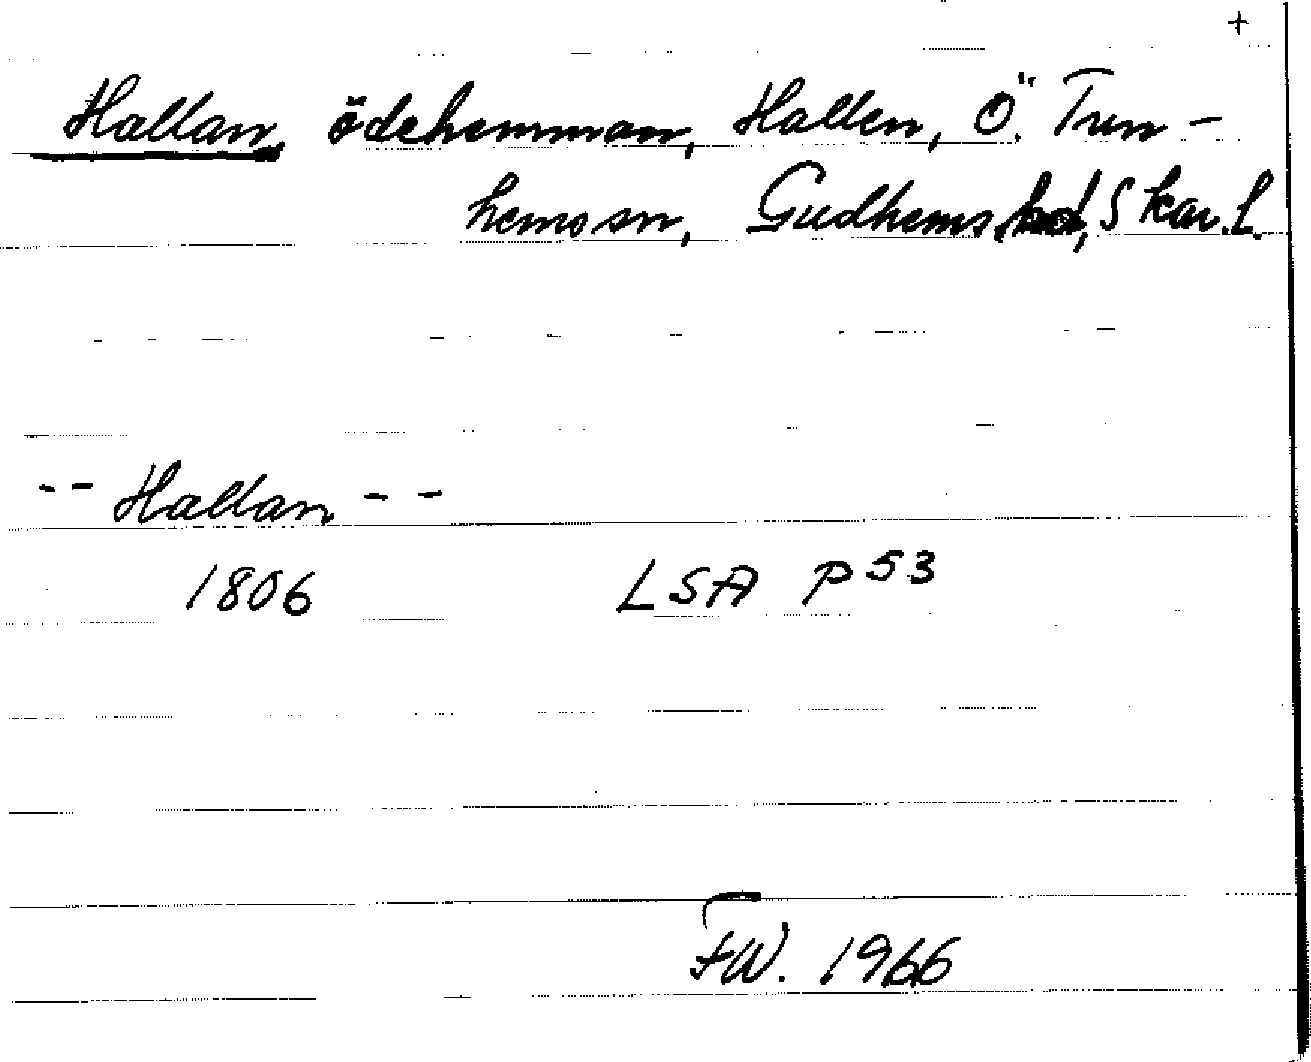 +
Hallan, ödehemman, Hallen, Ö. Tun-
hems sn, Gudhems hd, Skar. L.
-- Hallan --
1806 LSA P 53
FW. 1966